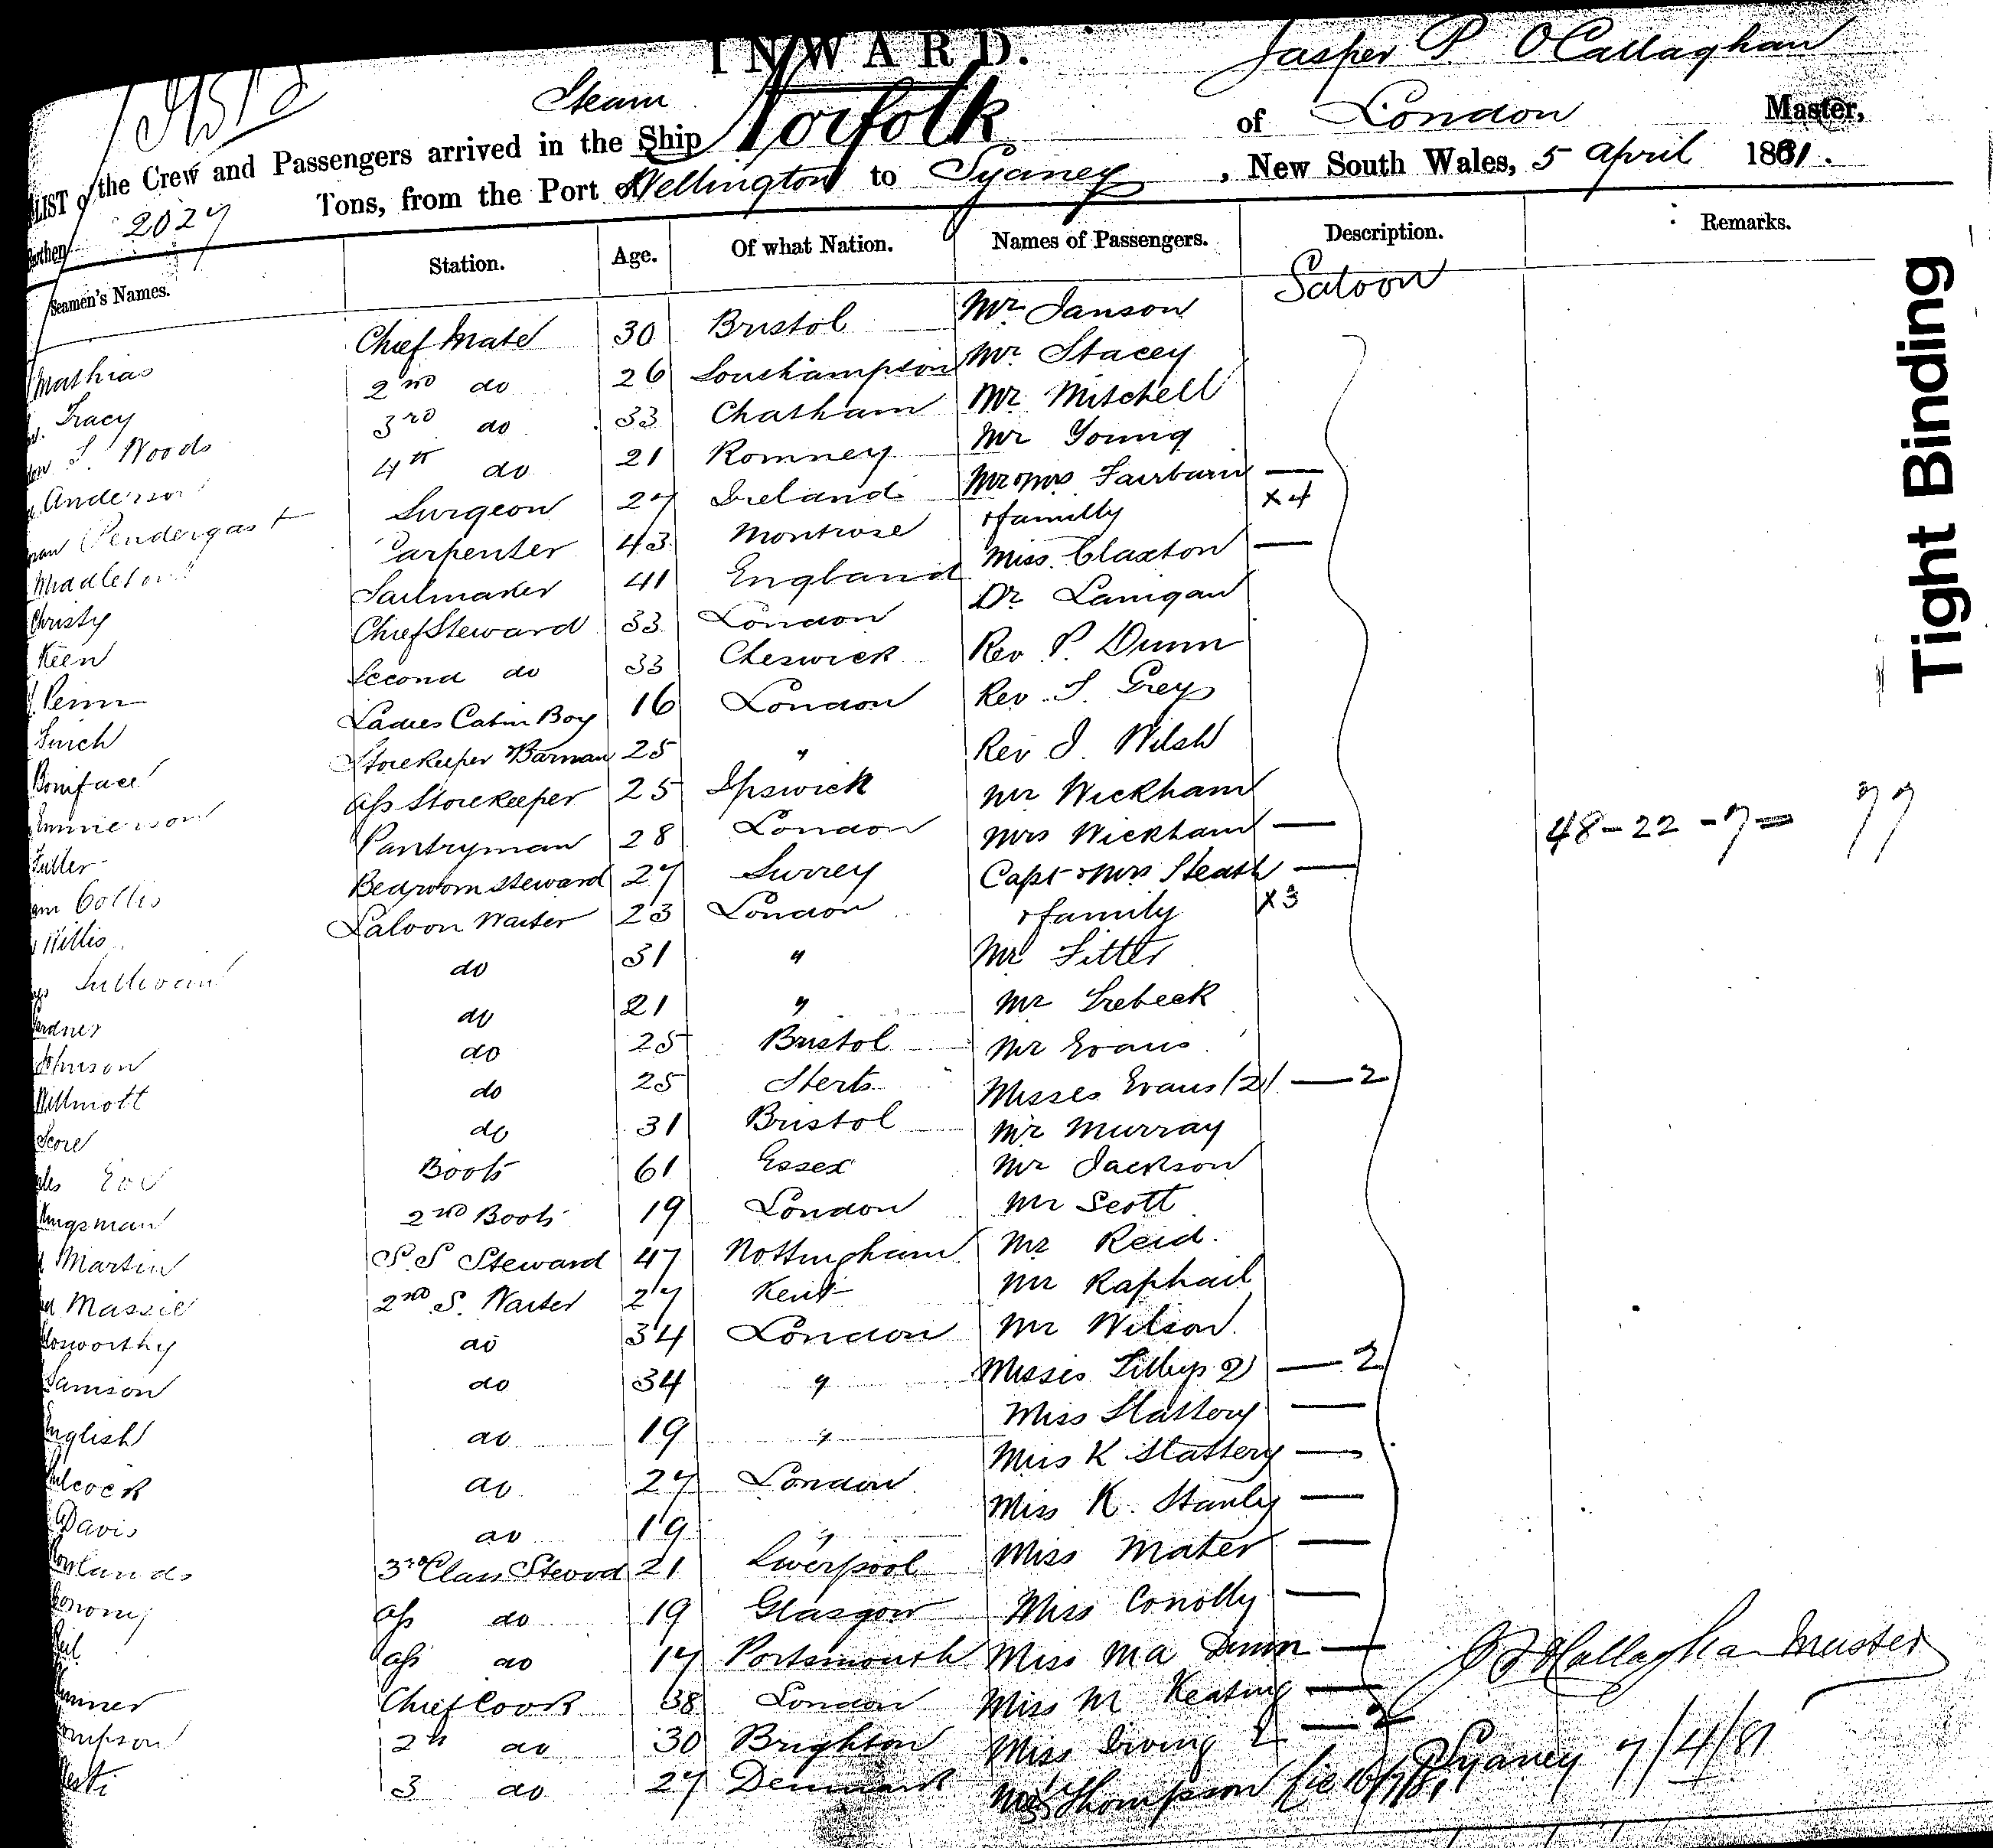 INWARD.
Jasper P. O'Callaghan
Steam
LIST of the Crew and Passengers arrived in the Ship Norfolk of London Master,
Burthen 2027 Tons, from the Port of Wellington to Sydney, New South Wales, 5 April 1881.
Seamen's Names. Station. Age. Of what Nation. Names of Passengers. Description. Remarks.
Saloon
Mathias Chief Mate 30 Bristol Mr Janson
Tracy 2nd do 26 Southampton Mr Stacey
T. Woods 3rd do 33 Chatham Mr Mitchell
Anderson 4th do 21 Romney Mr Young
Pendergast Surgeon 27 Ireland Mr & Mrs Fairburn —
Middleton Carpenter 43 Montrose & familly x 4
Christy Sailmaker 41 England Miss Claxton —
Keen Chief Steward 33 London Dr Lanigan
Penn Second do 33 Cheswick Rev P. Dunn
Finch Ladies Cabin Boy 16 London Rev T. Grey
Boniface Storekeeper & Barman 25 " Rev J. Wilsh
Emmerson Ass Storekeeper 25 Ipswich Mr Wickham
Fuller Pantryman 28 London Mrs Wickham —
Collis Bedroom Steward 27 Surrey Capt & Mrs Heath —
Willis Saloon Waiter 23 London & family x 3
Sullivan do 31 " Mr Fitter
Gardner do 21 " Mr Trebeck
Johnson do 25 Bristol Mr Evans
Willmott do 25 Herts Misses Evans (2) — 2
Score do 31 Bristol Mr Murray
Boots 61 Essex Mr Jackson
Kingsman 2nd Boots 19 London Mr Scott
Martin S.S Steward 47 Nottingham Mr Reid.
Massie 2nd S. Waiter 27 Kent Mr Raphail
Bosworthy do 34 London Mr Wilson
Samson do 34 " Misses Lilleys 2) — 2
English do 19 " Miss Slattery —
do 27 London Miss K Slattery —
Davis do 19 " Miss K. Stanly —
Rowlands 3rd Class Steward 21 Liverpool Miss Mater —
Conomy Ass do 19 Glasgow Miss Conolly —
Ass do 17 Portsmouth Miss M A Dunn —
Chief Cook 38 London Miss M Keating —
Thompson 2nd do 30 Brighton Miss Irving 2 — 2
3 do 27 Denmark Mrs Thompson
48 - 22 - 7 = 77
J P O'Callaghan Master
Sydney 7/4/81
Tight Binding